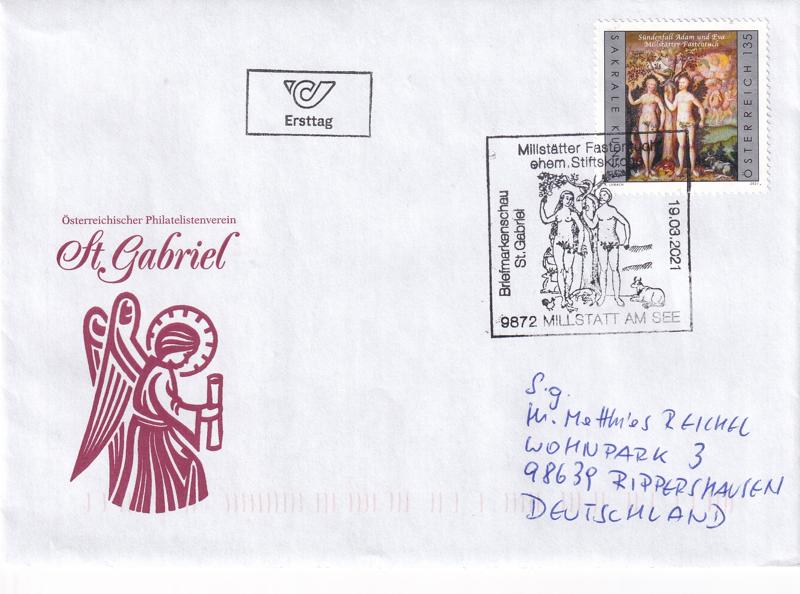 Sündenfall Adam und Eva
Millstätter Fastentuch
SAKRALE KUNST
ÖSTERREICH 135
2021
Ersttag
Millstätter Fastentuch
ehem. Stiftskirche
Briefmarkenschau
St. Gabriel
19.03.2021
9872 MILLSTATT AM SEE
Österreichischer Philatelistenverein
St. Gabriel
S.g.
H. Matthias REICHEL
WOHNPARK 3
98639 RIPPERSHAUSEN
DEUTSCHLAND